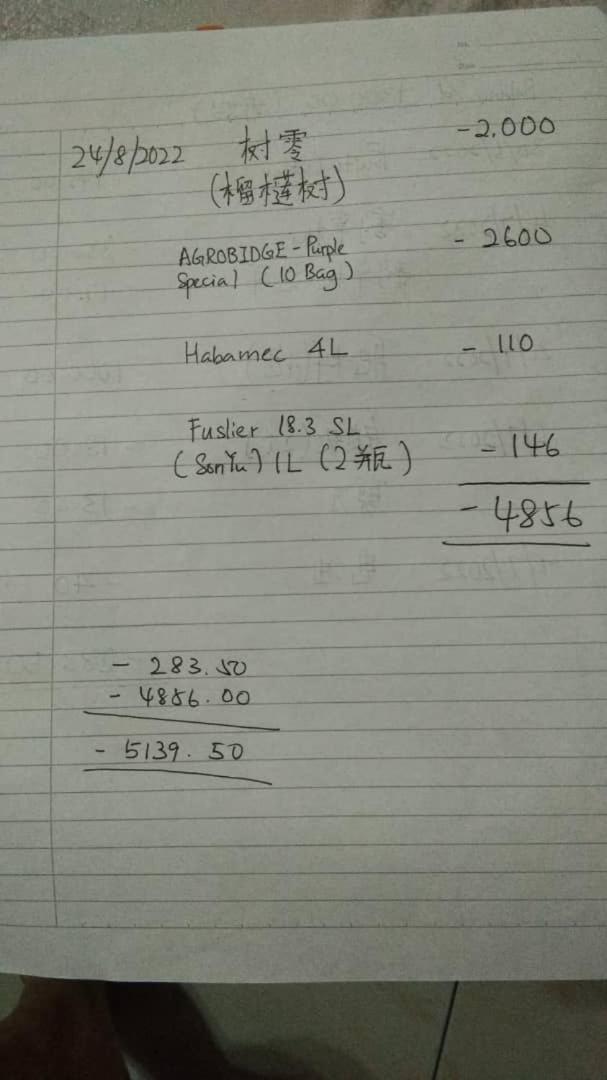 24/8/2022 树零 -2.000
(榴梿树)
AGROBIDGE - Purple - 2600
Special (10 Bag)
Habamec 4L - 110
Fuslier 18.3 SL
(SonYu) 1L (2瓶) - 146
- 4856
- 283.50
- 4856.00
- 5139.50